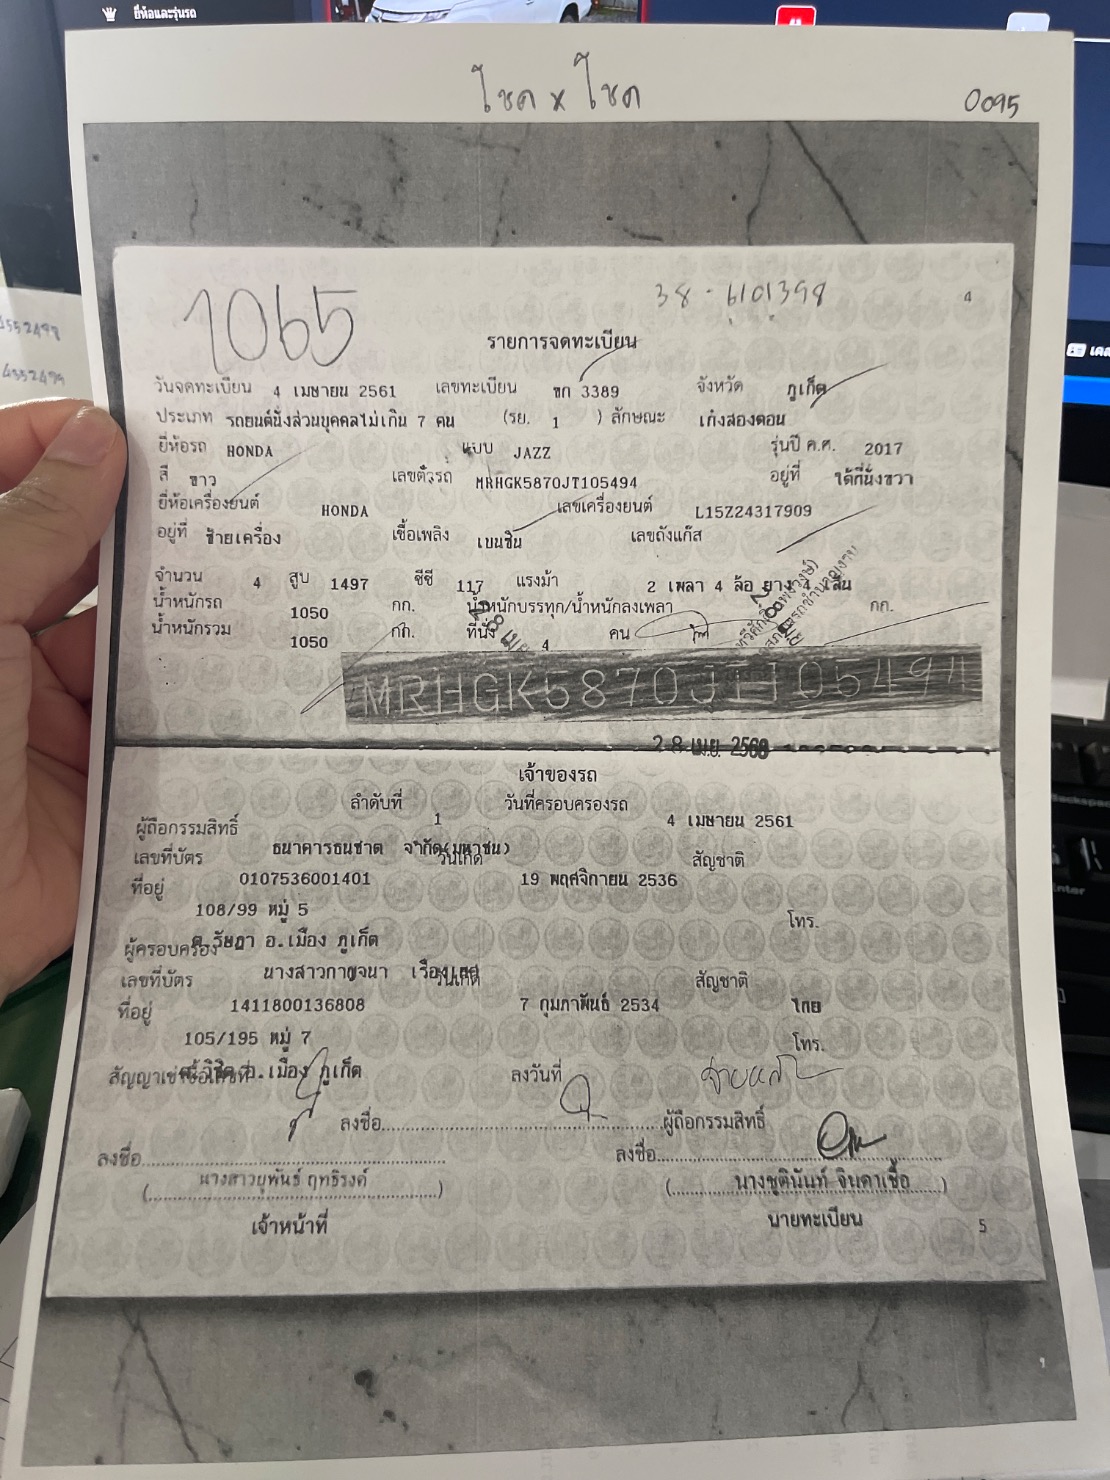 ยี่ห้อและรุ่นรถ
โชค x โชค
0095
1065
38-6101398
4
รายการจดทะเบียน
วันจดทะเบียน 4 เมษายน 2561 เลขทะเบียน ขก 3389 จังหวัด ภูเก็ต
ประเภท รถยนต์นั่งส่วนบุคคลไม่เกิน 7 คน (รย. 1 ) ลักษณะ เก๋งสองตอน
ยี่ห้อรถ HONDA แบบ JAZZ รุ่นปี ค.ศ. 2017
สี ขาว เลขตัวรถ MRHGK5870JT105494 อยู่ที่ ใต้ที่นั่งขวา
ยี่ห้อเครื่องยนต์ HONDA เลขเครื่องยนต์ L15Z24317909
อยู่ที่ ซ้ายเครื่อง เชื้อเพลิง เบนซิน เลขถังแก๊ส
จำนวน 4 สูบ 1497 ซีซี 117 แรงม้า 2 เพลา 4 ล้อ ยาง 4 เส้น
น้ำหนักรถ 1050 กก. น้ำหนักบรรทุก/น้ำหนักลงเพลา กก.
น้ำหนักรวม 1050 กก. ที่นั่ง 4 คน
MRHGK5870JT105494
28 เม.ย. 2560
เจ้าของรถ
ลำดับที่ 1 วันที่ครอบครองรถ 4 เมษายน 2561
ผู้ถือกรรมสิทธิ์ ธนาคารธนชาต จำกัด(มหาชน)
เลขที่บัตร 0107536001401 วันเกิด 19 พฤศจิกายน 2536 สัญชาติ
ที่อยู่ 108/99 หมู่ 5 โทร.
ต.รัษฎา อ.เมือง ภูเก็ต
ผู้ครอบครอง นางสาวกาญจนา
เลขที่บัตร 1411800136808 วันเกิด 7 กุมภาพันธ์ 2534 สัญชาติ ไทย
ที่อยู่ 105/195 หมู่ 7 โทร.
ต.วิชิต อ.เมือง ภูเก็ต
สัญญาเช่าซื้อเลขที่ ลงวันที่
ลงชื่อ ผู้ถือกรรมสิทธิ์
ลงชื่อ ลงชื่อ
(นางสาวยุพันธ์ ฤทธิรงค์) (นางชุตินันท์ จินดาเชื้อ)
เจ้าหน้าที่ นายทะเบียน
5